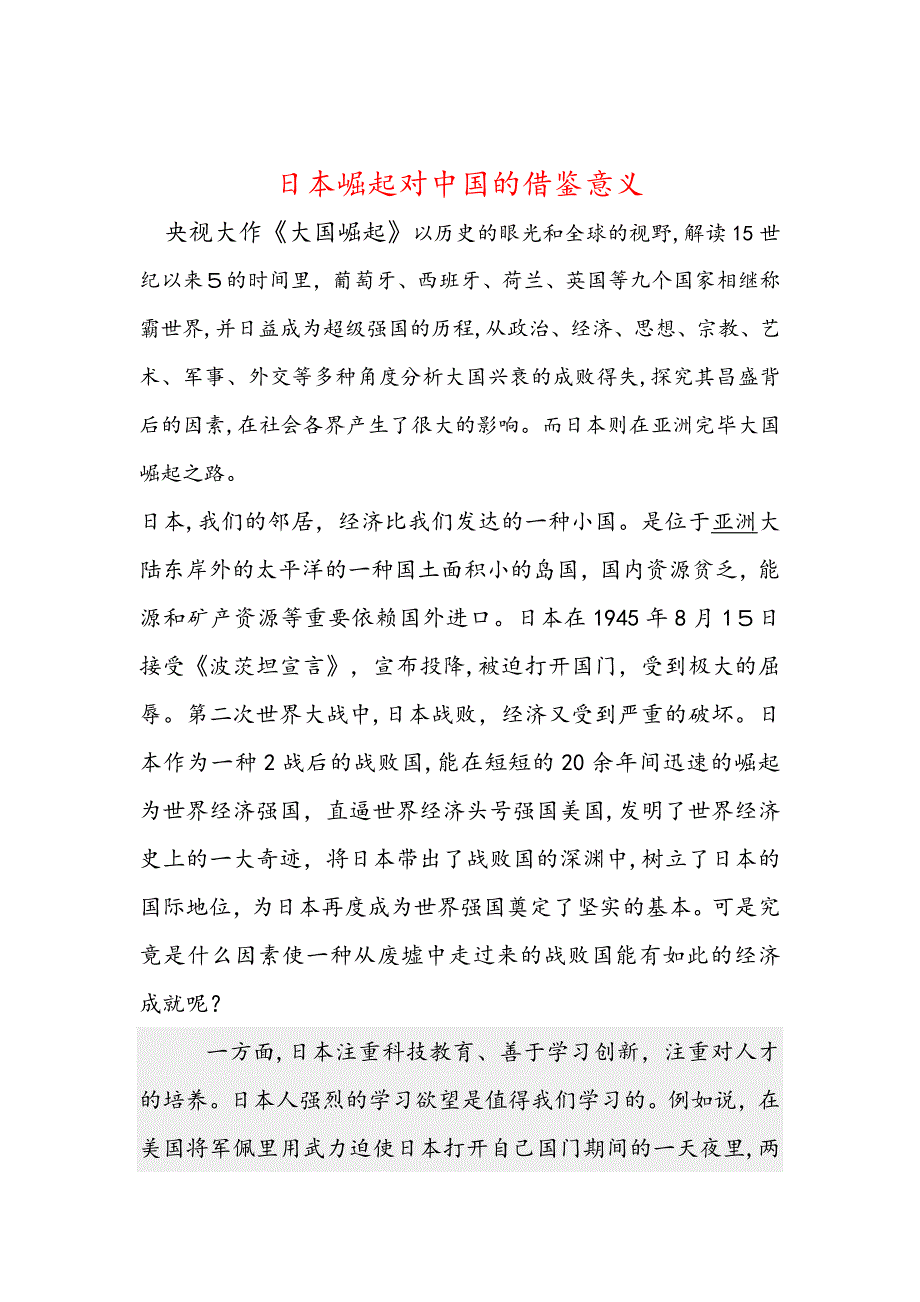 日本崛起对中国的借鉴意义
央视大作《大国崛起》以历史的眼光和全球的视野,解读15世
纪以来5的时间里，葡萄牙、西班牙、荷兰、英国等九个国家相继称
霸世界,并日益成为超级强国的历程,从政治、经济、思想、宗教、艺
术、军事、外交等多种角度分析大国兴衰的成败得失,探究其昌盛背
后的因素,在社会各界产生了很大的影响。而日本则在亚洲完毕大国
崛起之路。
日本,我们的邻居，经济比我们发达的一种小国。是位于亚洲大
陆东岸外的太平洋的一种国土面积小的岛国，国内资源贫乏，能
源和矿产资源等重要依赖国外进口。日本在1945年8月15日
接受《波茨坦宣言》，宣布投降,被迫打开国门，受到极大的屈
辱。第二次世界大战中,日本战败，经济又受到严重的破坏。日
本作为一种2战后的战败国,能在短短的20余年间迅速的崛起
为世界经济强国，直逼世界经济头号强国美国,发明了世界经济
史上的一大奇迹，将日本带出了战败国的深渊中,树立了日本的
国际地位，为日本再度成为世界强国奠定了坚实的基本。可是究
竟是什么因素使一种从废墟中走过来的战败国能有如此的经济
成就呢?
一方面,日本注重科技教育、善于学习创新，注重对人才
的培养。日本人强烈的学习欲望是值得我们学习的。例如说，在
美国将军佩里用武力迫使日本打开自己国门期间的一天夜里,两